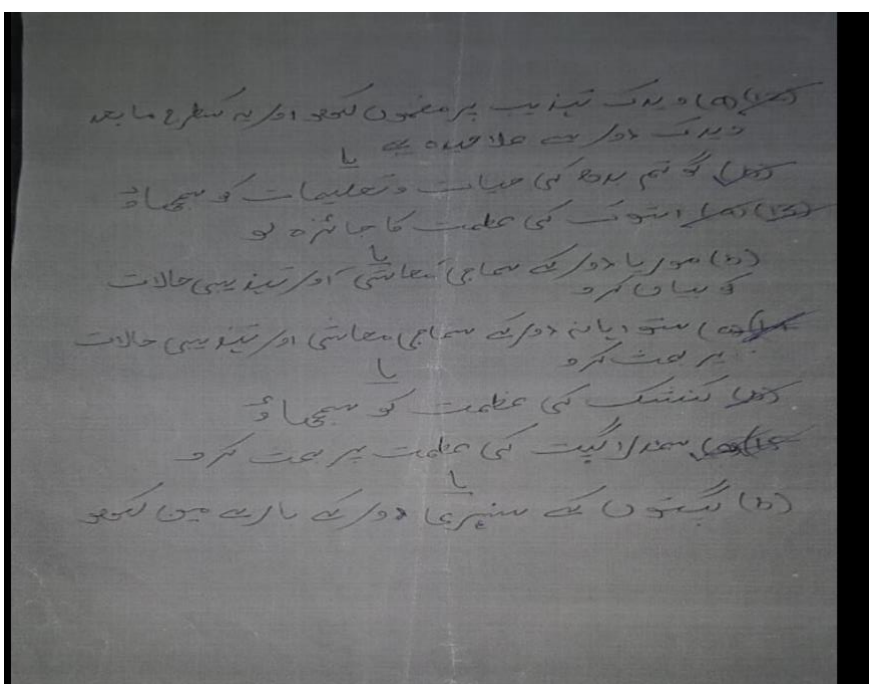 (a) ویدک تہذیب پر مضمون لکھو اور یہ کسطرح مابعد
ویدک دور سے علاحیدہ ہے
یا
(b) گوتم بدھ کی حیات و تعلیمات کو سمجھاؤ
(13) (a) اشوک کی عظمت کا جائزہ لو
یا
(b) موریا دور کے سماجی معاشی اور تہذیبی حالات
کو بیان کرو
(a) ستواہانہ دور کے سماجی معاشی اور تہذیبی حالات
پر بحث کرو
یا
(b) کنشک کی عظمت کو سمجھاؤ
(a) سمدرا گپت کی عظمت پر بحث کرو
یا
(b) گپتوں کے سنہری دور کے بارے میں لکھو